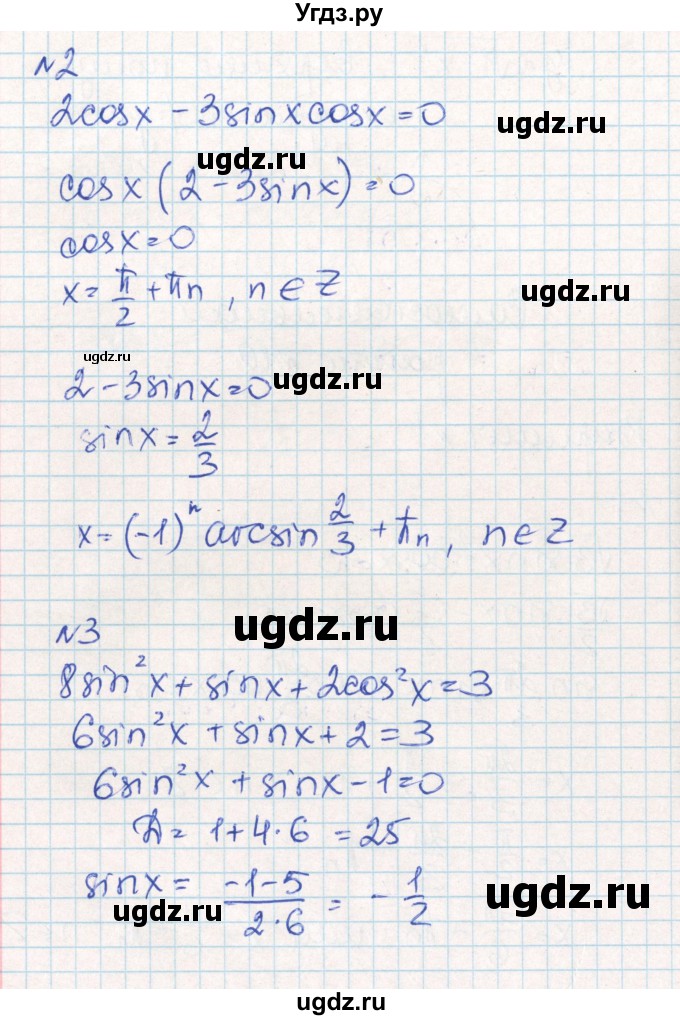 Угдз.ру
№2
2cosx - 3sinxcosx = 0
ugdz.ru
ugdz.ru
cosx(2 - 3sinx) = 0
cosx = 0
x = π/2 + πn, n ∈ Z
ugdz.ru
ugdz.ru
ugdz.ru
2 - 3sinx = 0
sinx = 2/3
x = (-1)ⁿ arcsin 2/3 + πn, n ∈ Z
ugdz.ru
№3
8sin²x + sinx + 2cos²x = 3
6sin²x + sinx + 2 = 3
6sin²x + sinx - 1 = 0
Д = 1 + 4·6 = 25
sinx = (-1-5)/(2·6) = -1/2
ugdz.ru
ugdz.ru
ugdz.ru